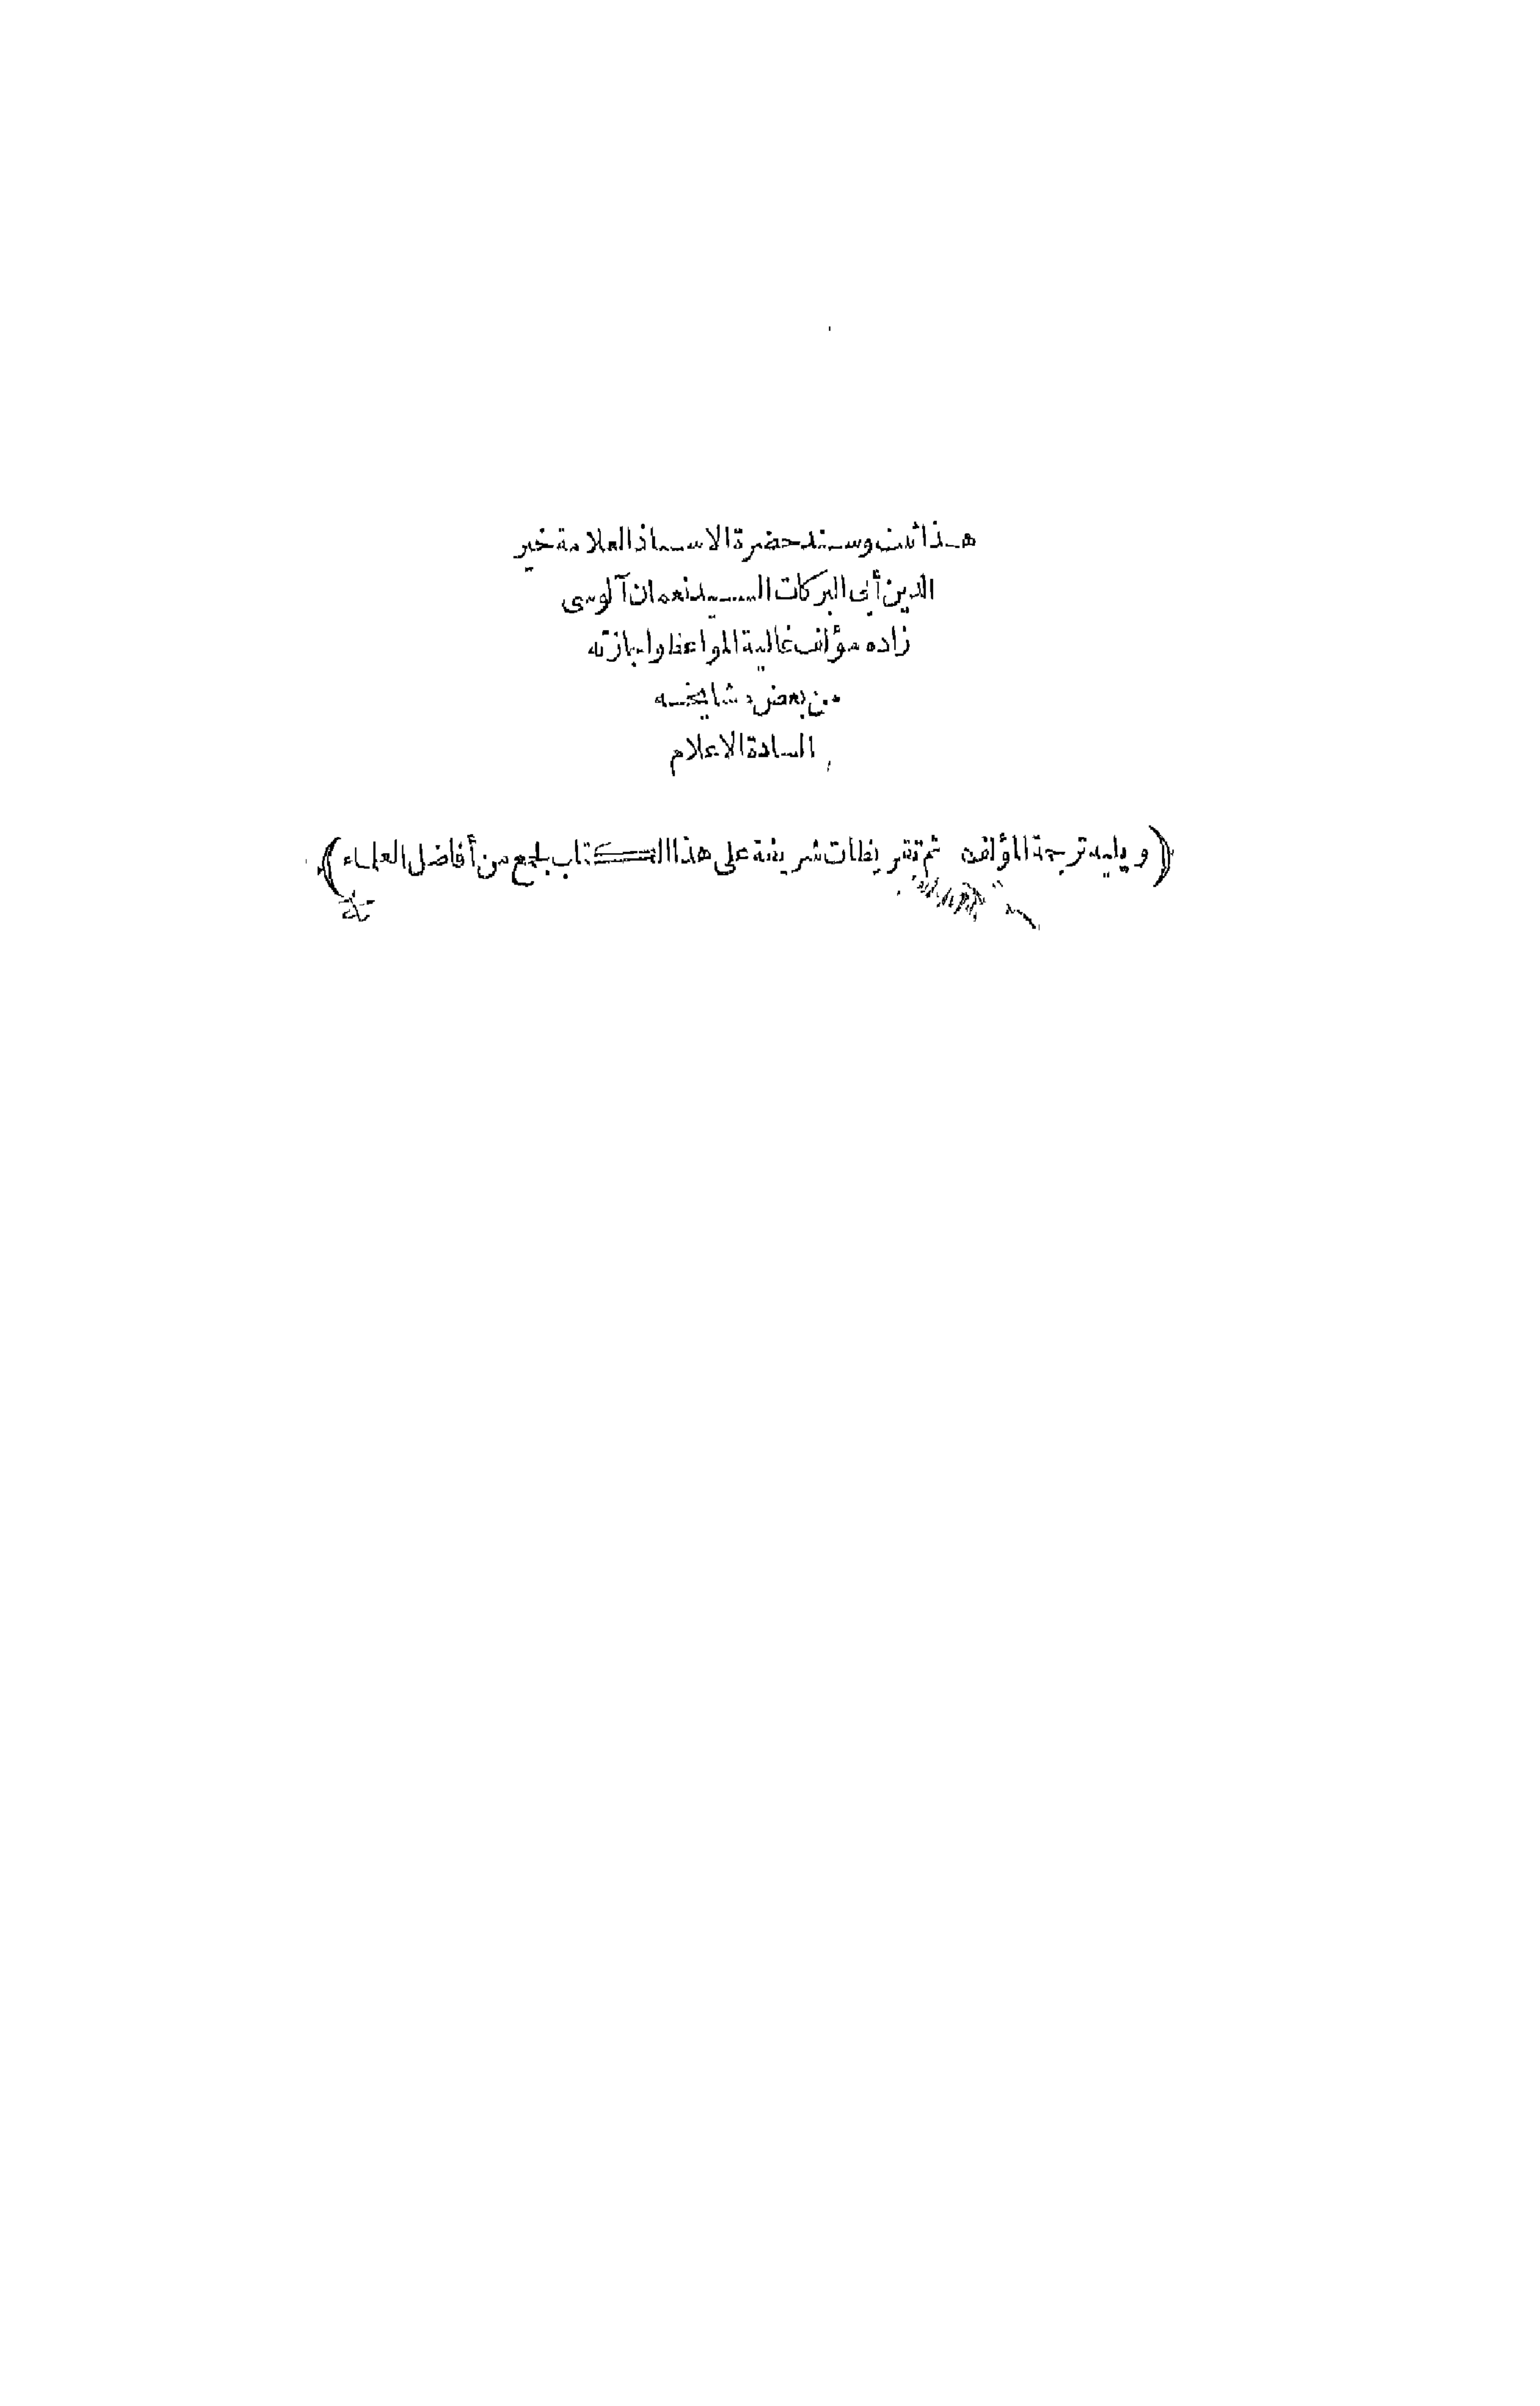 هذا ثبت وسند حضرة الاستاذ العلامة خير
الدين أبى البركات السيد نعمان آلوسى
زاده مؤلف غالية المواعظ واجازته
من بعض مشايخه
السادة الاعلام
﴿ويليه ترجمة المؤلف ثم تقريظات شريفة على هذا الكتاب لجمع من أفاضل العلماء﴾